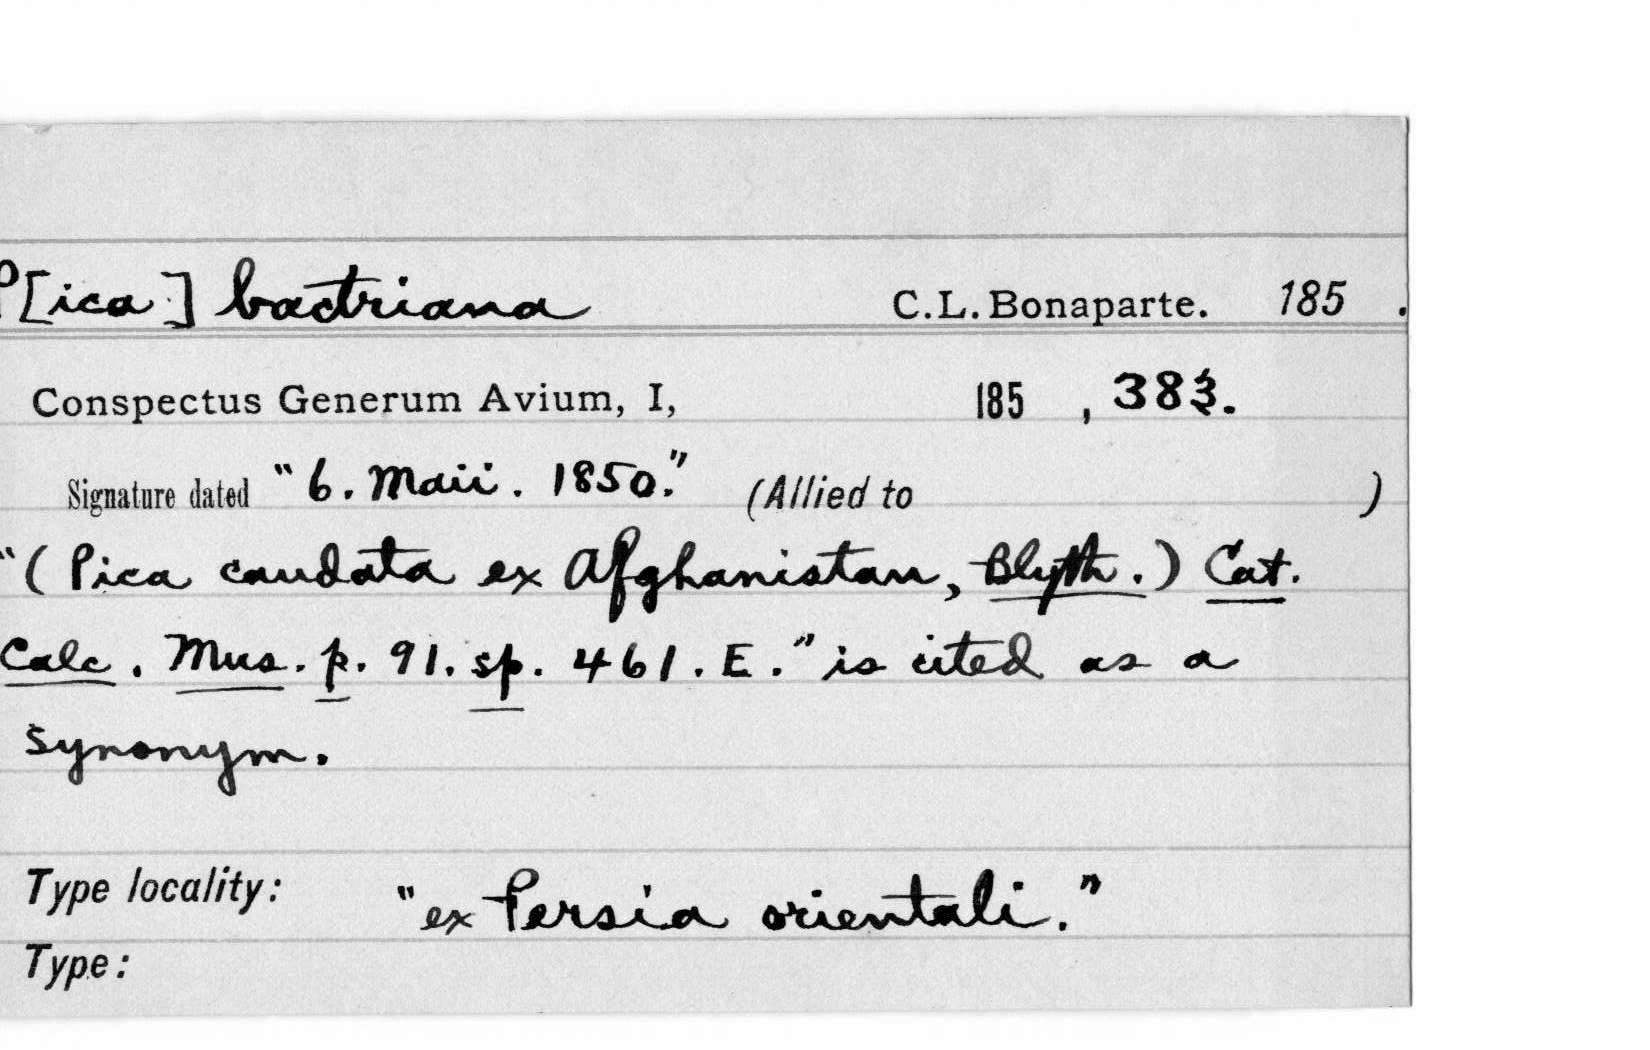 P[ica] bactriana C.L. Bonaparte. 185 .
Conspectus Generum Avium, I, 185 , 383.
Signature dated "6. Maii. 1850." (Allied to )
"(Pica caudata ex Afghanistan, Blyth.) Cat.
Calc. Mus. p. 91. sp. 461. E." is cited as a
synonym.
Type locality: "ex Persia orientali."
Type: